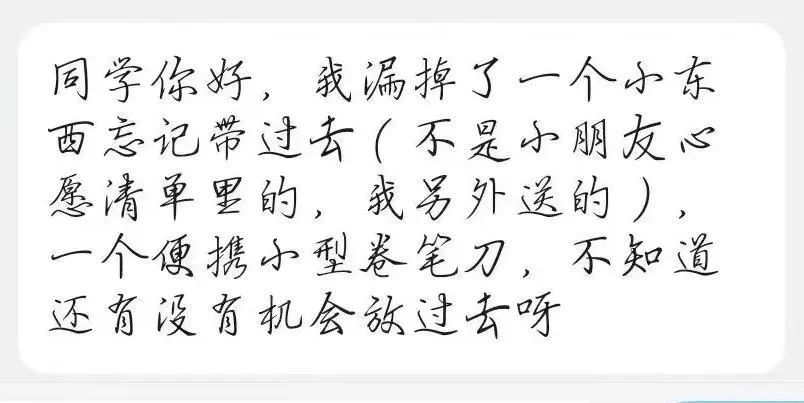 同学你好，我漏掉了一个小东
西忘记带过去（不是小朋友心
愿清单里的，我另外送的），
一个便携小型卷笔刀，不知道
还有没有机会放过去呀